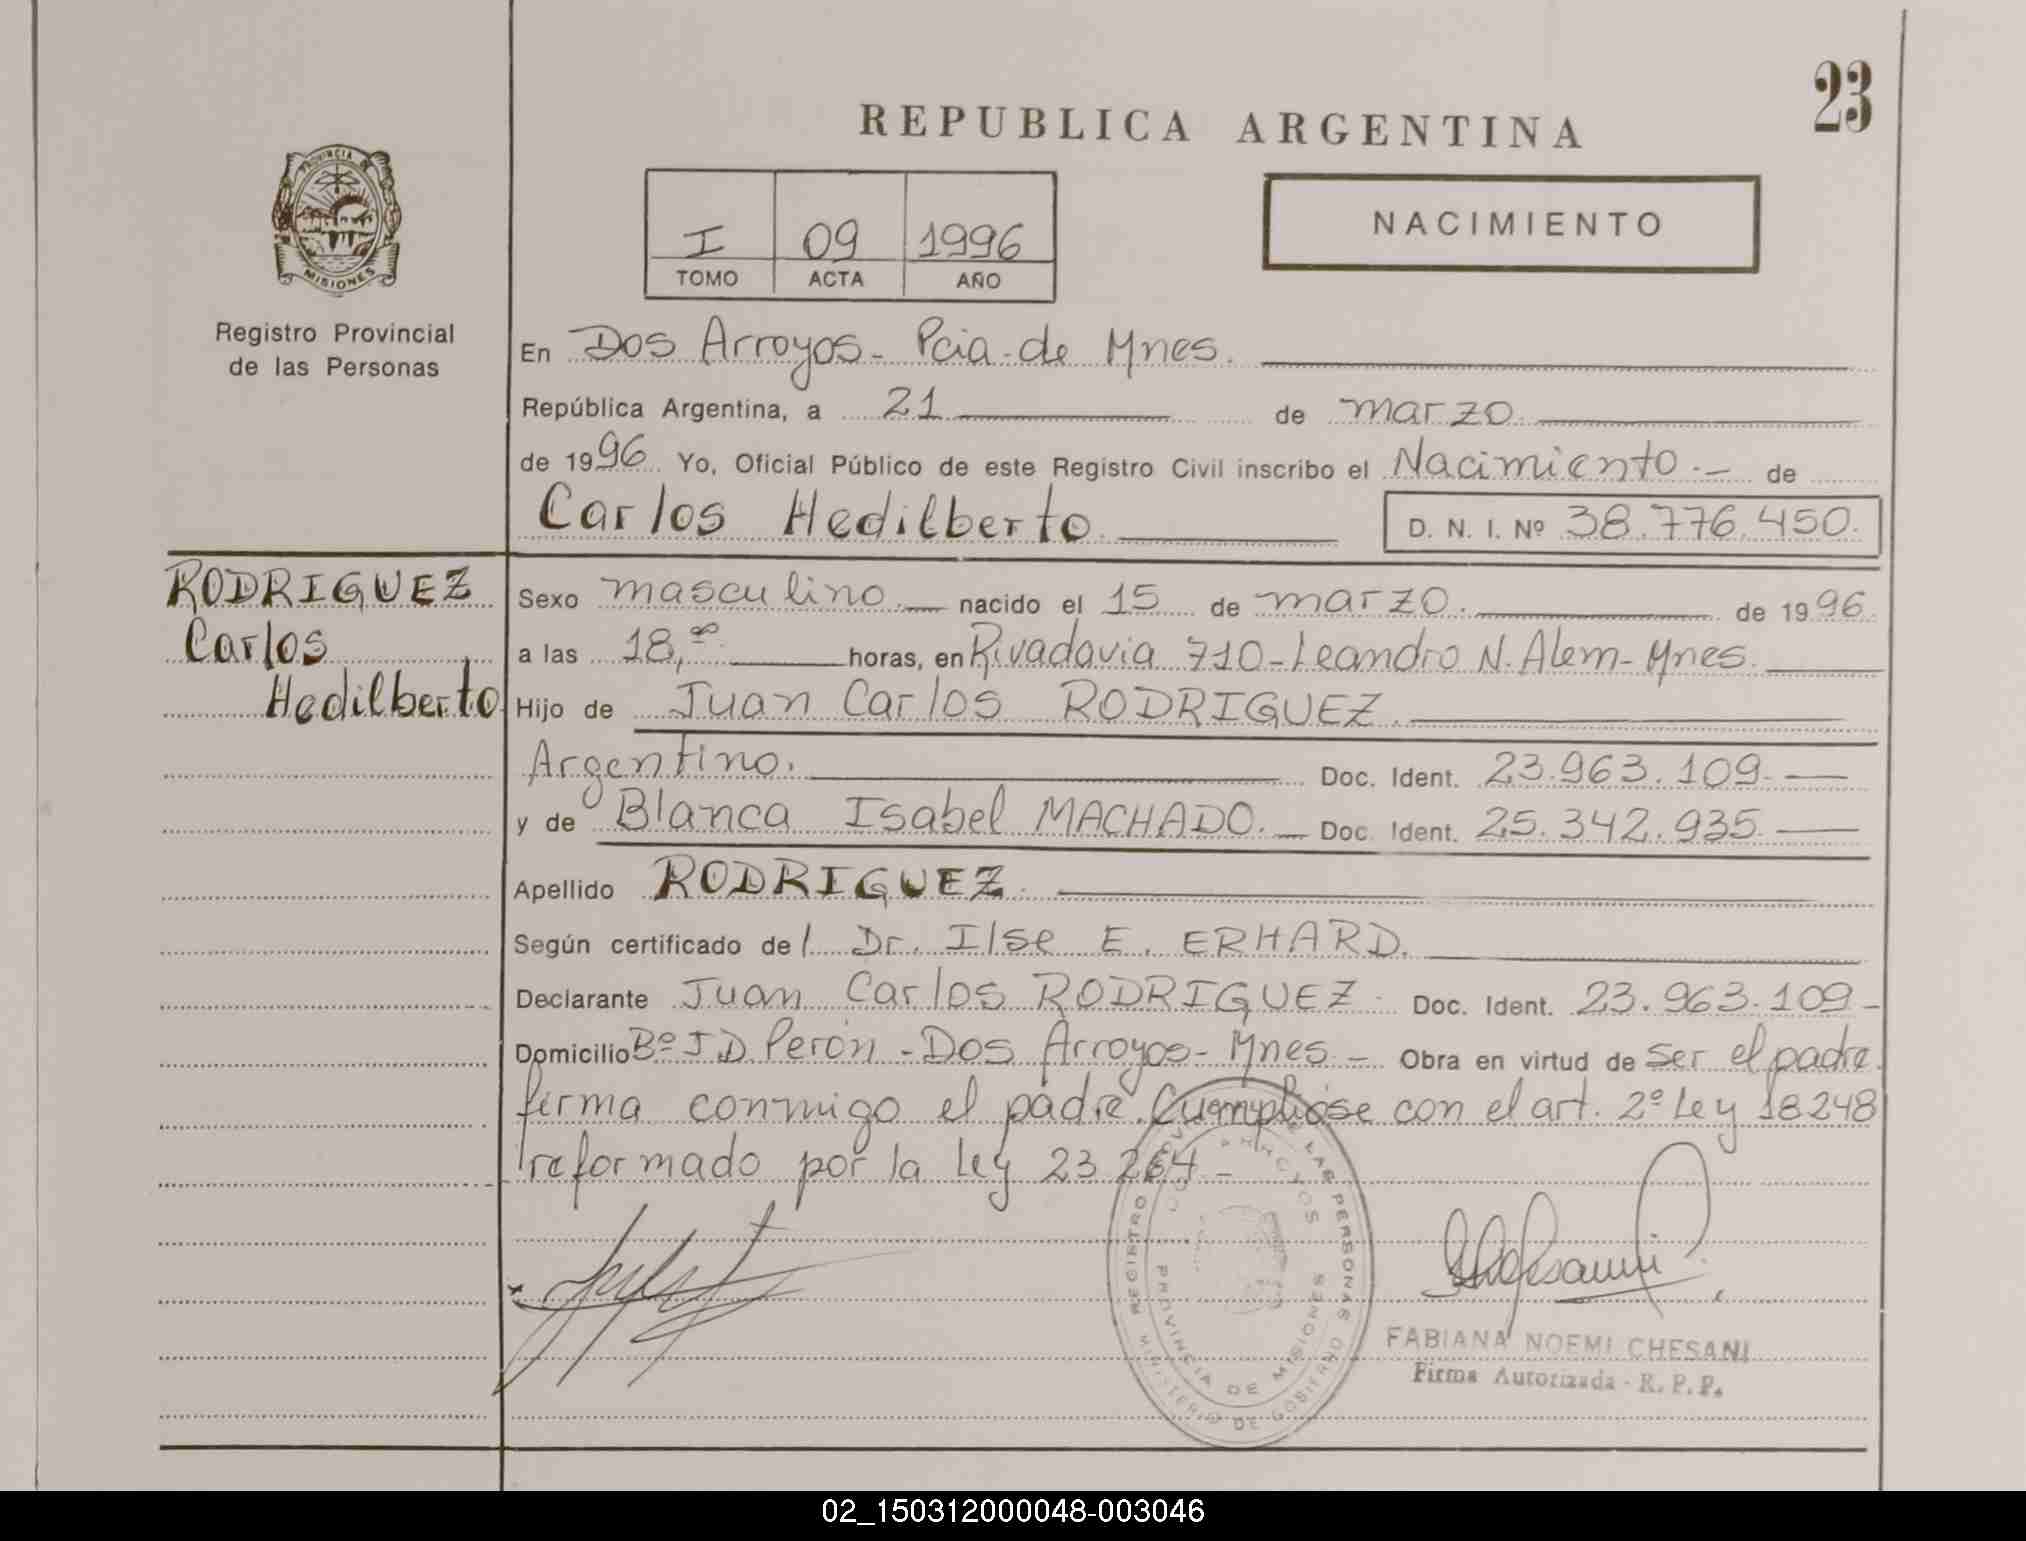 23
REPUBLICA ARGENTINA
PROVINCIA DE
MISIONES
Registro Provincial
de las Personas
I 09 1996
TOMO ACTA AÑO
NACIMIENTO
En Dos Arroyos - Pcia. de Mnes.
República Argentina, a 21 de marzo
de 1996 Yo, Oficial Público de este Registro Civil inscribo el Nacimiento.- de
Carlos Hedilberto.
D. N. I. Nº 38.776.450.
RODRIGUEZ
Carlos
Hedilberto
Sexo masculino.- nacido el 15 de marzo. de 1996.
a las 18,00 horas, en Rivadavia 710-Leandro N. Alem-Mnes.
Hijo de Juan Carlos RODRIGUEZ.
Argentino. Doc. Ident. 23.963.109.-
y de Blanca Isabel MACHADO.- Doc. Ident. 25.342.935.-
Apellido RODRIGUEZ.
Según certificado de/ Dr. Ilse E. ERHARD.
Declarante Juan Carlos RODRIGUEZ. Doc. Ident. 23.963.109-
Domicilio Bº J.D. Perón - Dos Arroyos - Mnes.- Obra en virtud de ser el padre.
firma conmigo el padre. Cuempliose con el art. 2º Ley 18248
reformado por la Ley 23.264.-
REGISTRO PROV DE LAS PERSONAS
MINISTERIO DE GOBIERNO
DOS ARROYOS
PROVINCIA DE MISIONES
FABIANA NOEMI CHESANI
Firma Autorizada - R. P. P.
02_150312000048-003046